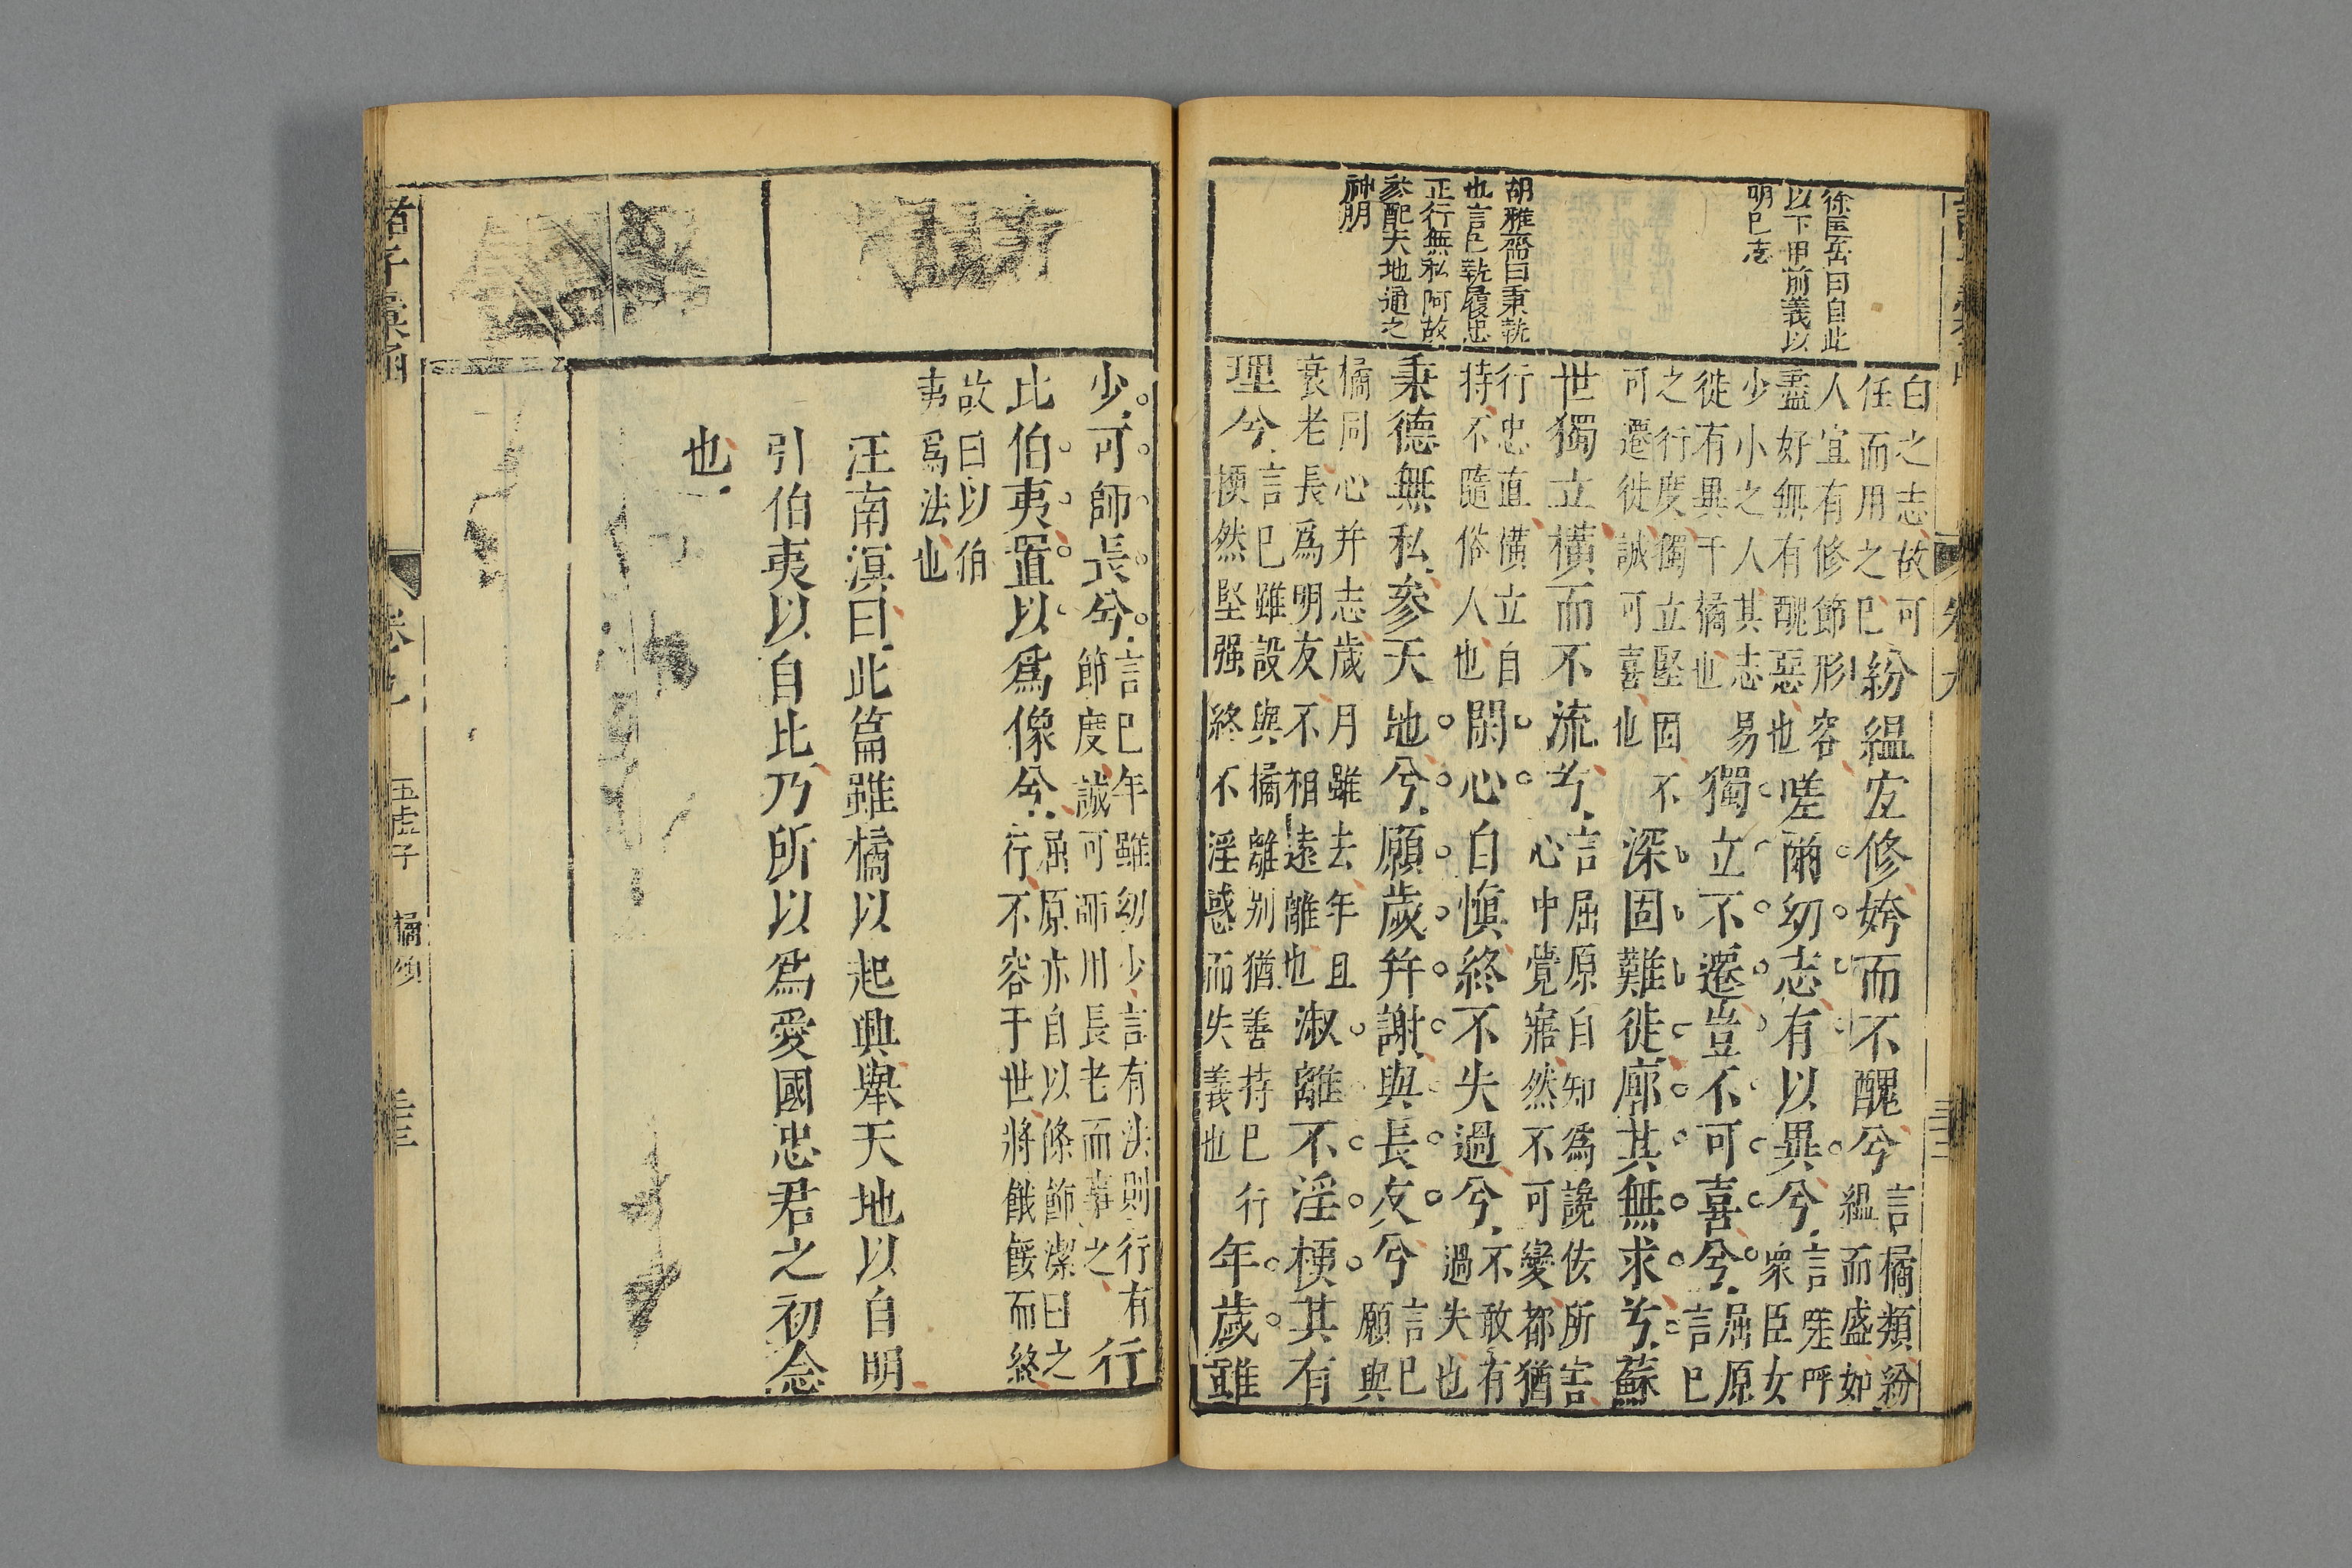 徐匡岳曰自此
以下申前義以
明已志
胡雅齋曰秉執
也言已執履忠
正行無私阿故
參配天地通之
神明
白之志故可任而用之已紛緼宐修姱而不醜兮言橘類紛緼而盛如
人宜有修節形容盡好無有醜惡也嗟爾幼志有以異兮言嗟呼衆臣女
少小之人其志易徙有異于橘也獨立不遷豈不可喜兮屈原言已
之行度獨立堅固不可遷徙誠可喜也深固難徙廓其無求兮蘇
世獨立橫而不流兮言屈原自知爲讒佞所害心中覺寤然不可變都猶
行忠直橫立自持不隨俗人也閉心自慎終不失過兮不敢有過失也
秉德無私參天地兮願歲并謝與長友兮言已願與
橘同心并志歲月雖去年且衰老長爲明友不相遠離也淑離不淫梗其有
理兮言已雖設與橘離别猶善持已行梗然堅强終不淫惑而失義也年歲雖
少可師長兮言已年雖幼少言有法則行有節度誠可師用長老而事之行
比伯夷置以爲像兮屈原亦自以脩飾潔白之行不容于世將餓餒而終
故曰以伯夷爲法也
汪南溟曰此篇雖橘以起興舉天地以自明
引伯夷以自比乃所以爲愛國忠君之初念
也
諸子彙函 卷九 玉虛子 橘頌